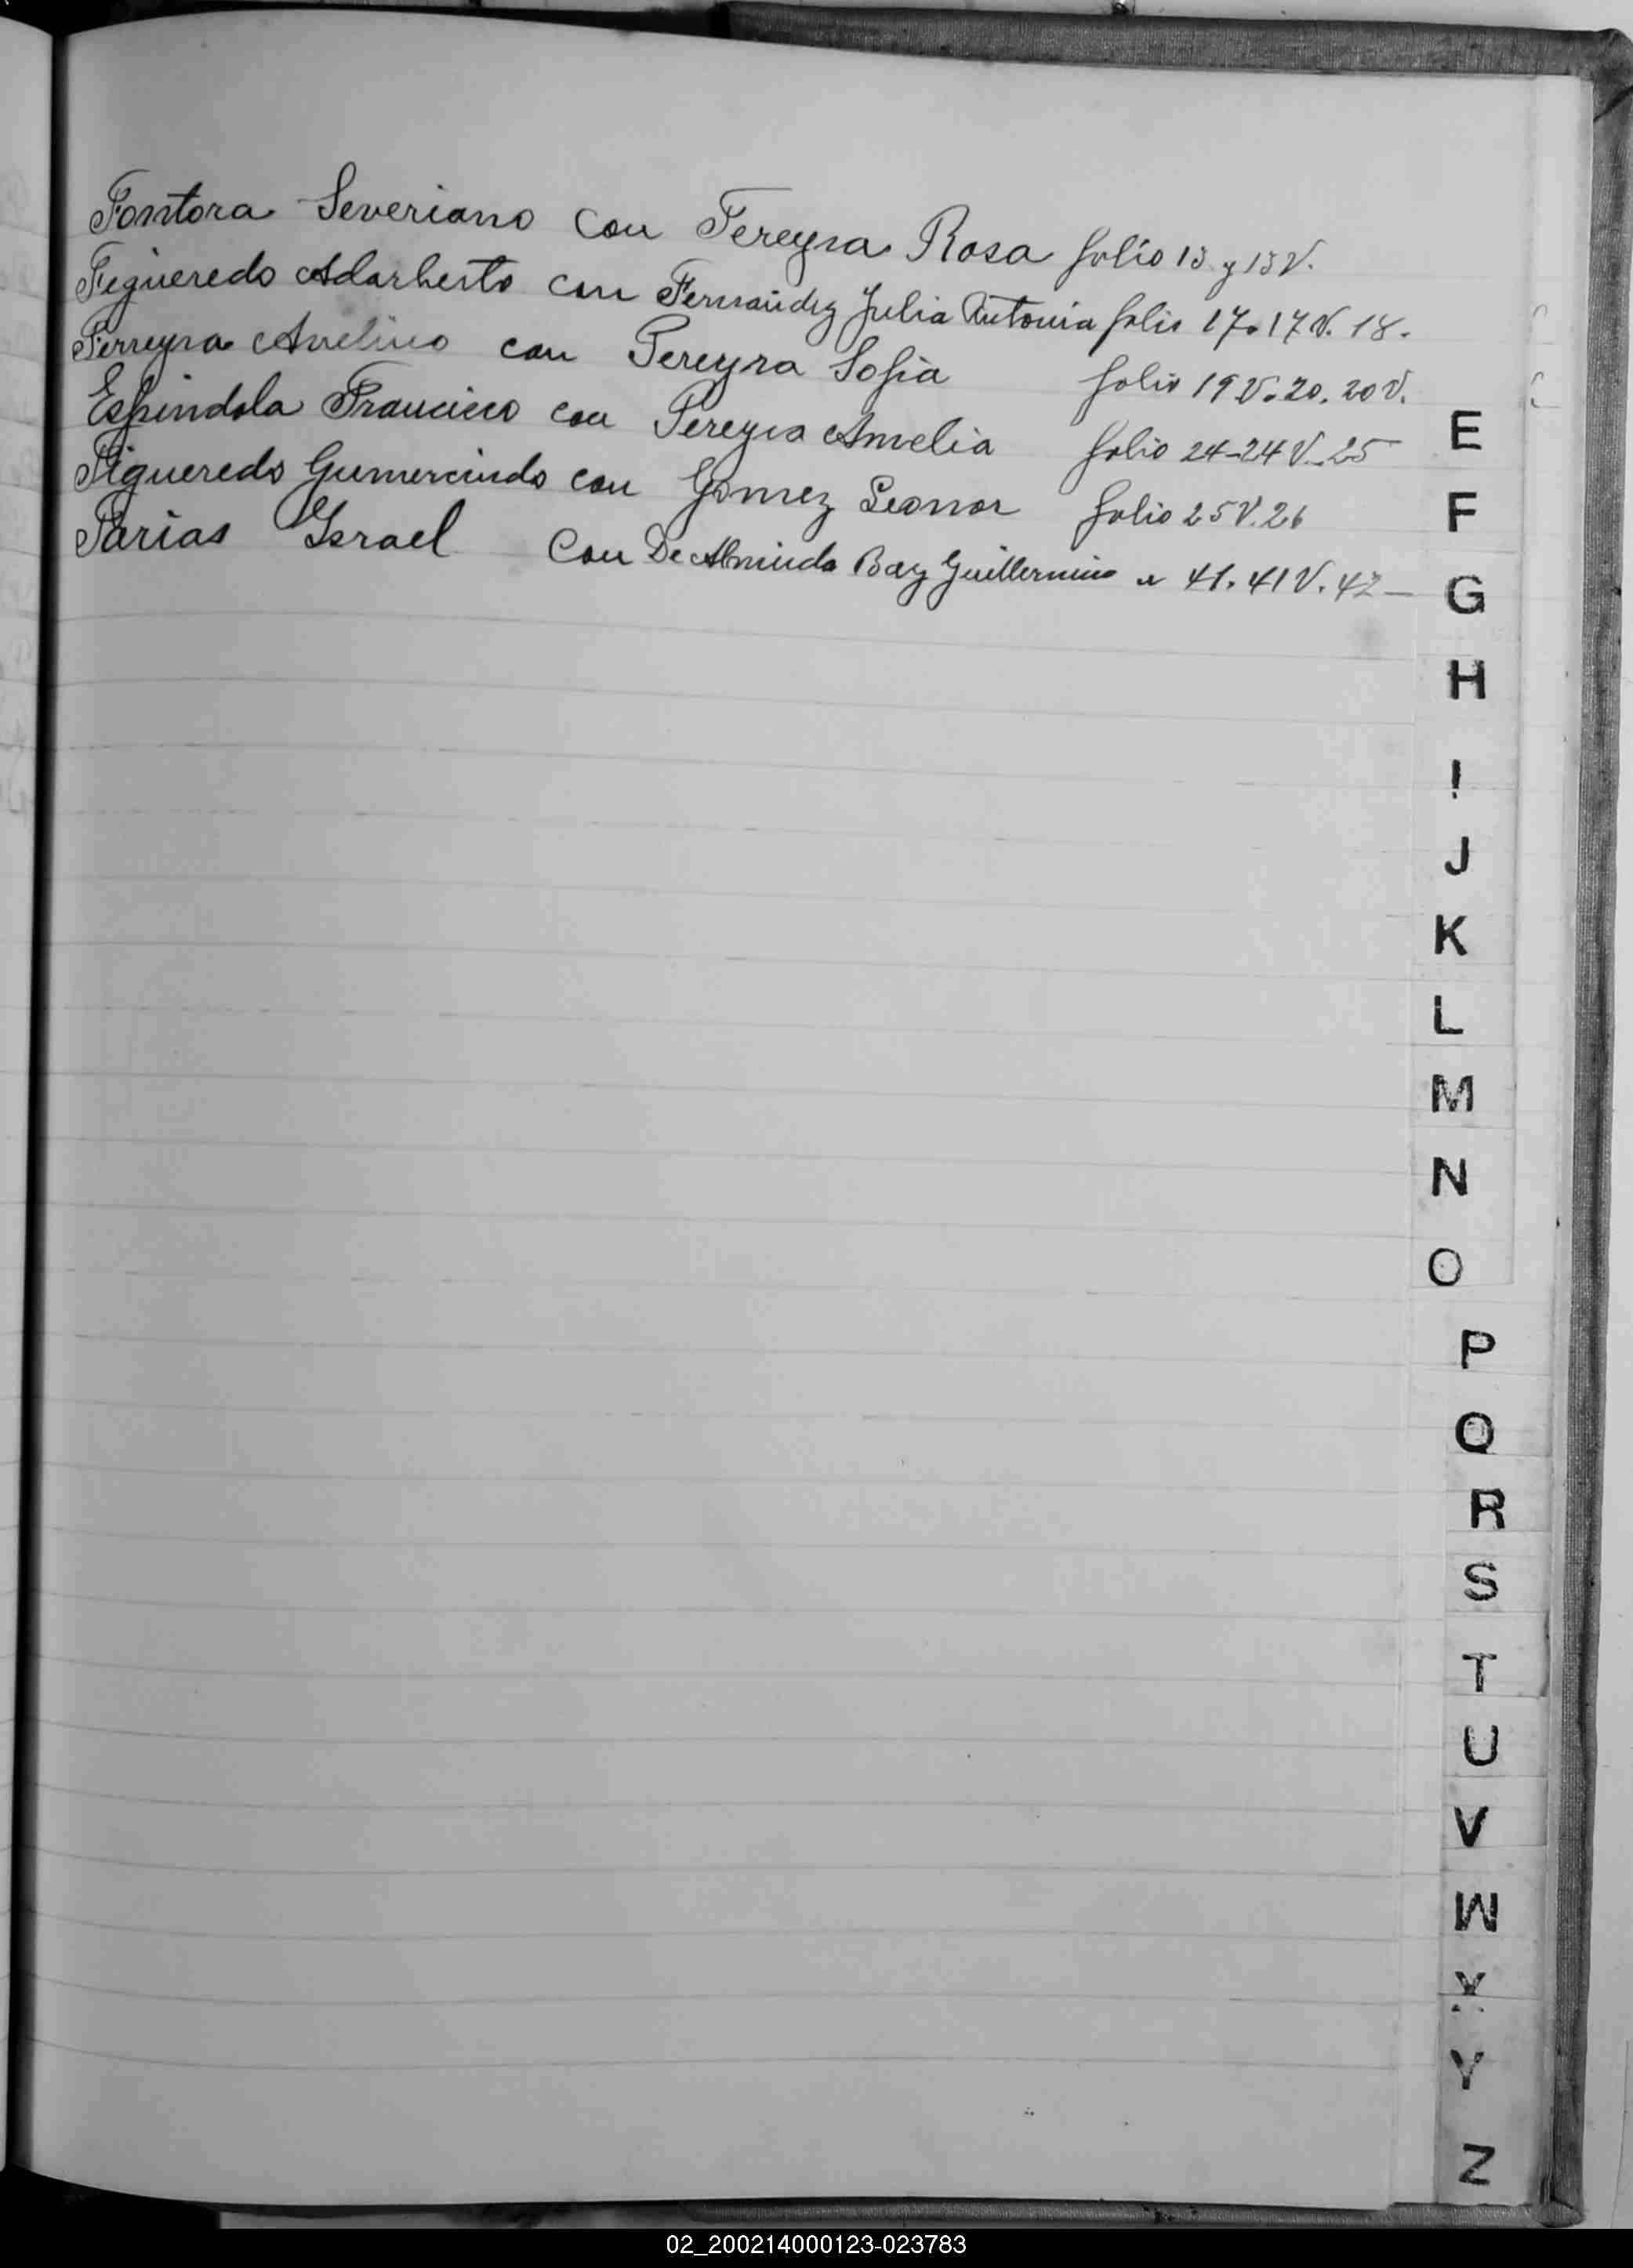 Fontora Severiano con Fereyra Rosa folio 13 y 13 V.
Figueredo Adarberto con Fernandez Julia Antonia folio 17. 17 V. 18.
Ferreyra Avelino con Pereyra Sofia folio 19 V. 20. 20 V.
Espindola Francisco con Pereyra Amelia folio 24-24 V-25
Figueredo Gumercindo con Gomez Leonor folio 25 V. 26
Farias Israel Con De Almeida Bay Guillermina " 41. 41 V. 42
E
F
G
H
I
J
K
L
M
N
O
P
Q
R
S
T
U
V
W
X
Y
Z
02_200214000123-023783